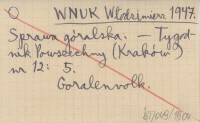 WNUK Włodzimierz 1947.
Sprawa góralska. — Tygod-
nik Powszechny (Kraków)
nr 12: 5.
Goralenvolk.